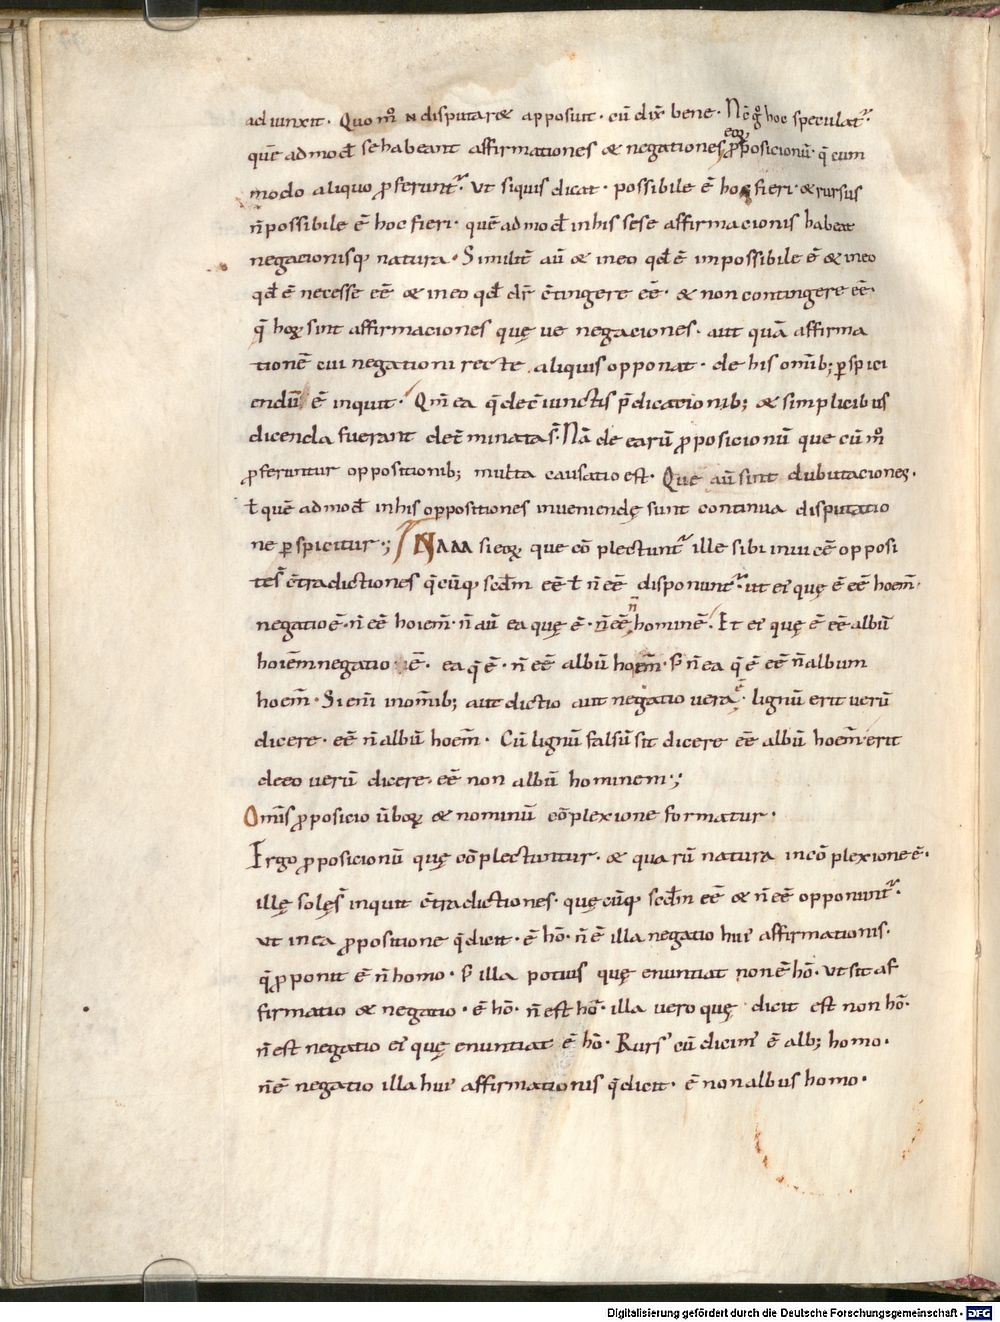 adiunxit· Quo m̊ N disputaret apposuit· cũ dix̃ bene· Nc̃ g̊ hoc speculat᷑·
quẽ admođ se habeant affirmationes et negationes eoꝝ ꝓposicionũ· q̃ cum
modo aliquo ꝓferunt᷑· ut siquis dicat· possibile ẽ hoc fieri· et rursus
ñ possibile ẽ hoc fieri· quẽ admođ inhis sese affirmacionis habeat
negacionisq; natura· Similit̃ aũ et ineo qđ ẽ impossibile ẽ et ineo
qđ ẽ necesse eẽ et ineo qđ dr̃ c̃tingere eẽ· et non contingere eẽ·
q̃ hoꝝ sint affirmaciones quę ue negaciones· aut quã affirma
tionẽ cui negationi recte aliquis opponat· de his om̃ib; ꝑspici
endũ ẽ inquit· Qm̃ ea q̃ de c̃iunctis p̃dicationib; et simplicibus
dicenda fuerant det̃minata s̃· Nã de earũ ꝓposicionũ que cũ m̊
ꝓferuntur oppositionib; multa causatio est· Que aũ sint dubitaciones·
ł quẽ admođ inhis oppositiones inueniendę sunt continua disputatio
ne ꝑspicitur·; NAM si eoꝝ que cõplectunt᷑ ille sibi inuicẽ opposi
tes̃ c̃tradictiones q̃cũq; scđm eẽ ł ñ eẽ disponunt᷑· ut ei quę ẽ eẽ hoem̃·
negatio ẽ· ñ eẽ hoiem̃· ñ aũ ea quę ẽ· ñ eẽ ñ hominẽ· Et ei quę ẽ eẽ albũ
hoiem̃ negatio· ẽ· ea q̃ ẽ· ñ eẽ albũ hoem̃· s̃ ñ ea q̃ ẽ eẽ ñ album
hoem̃· Si eni inom̃ib; aut dictio aut negatio uera ẽ· lignũ erit uerũ
dicere· eẽ ñ albũ hoem̃· Cũ lignũ falsũ sit dicere eẽ albũ hoem̃· erit
deeo uerũ dicere· eẽ non albũ hominem·;
Omis̃ ꝓposicio ũboꝝ et nominũ cõplexione formatur·
Ergo ꝓposicionũ quę cõplectuntur· et quarũ natura incõplexione ẽ·
illę solęs̃ inquit c̃tradictiones· quęcũq; scđm eẽ et ñ eẽ opponunt᷑·
ut in ea ꝓpositione q̃ dicit· ẽ hõ· ñ ẽ illa negatio hui᾽ affirmationis·
q̃ ꝓponit ẽ ñ homo· s̃ illa potius quę enuntiat non ẽ hõ· ut sit af
firmatio et negatio· ẽ hõ· ñ est hõ· illa uero quę dicit est non hõ·
ñ est negatio ei quę enuntiat ẽ hõ· Rurs᾽ cũ dicim᾽ ẽ alb; homo·
ñ ẽ negatio illa hui᾽ affirmationis q̃ dicit· ẽ non albus homo·
Digitalisierung gefördert durch die Deutsche Forschungsgemeinschaft - DFG